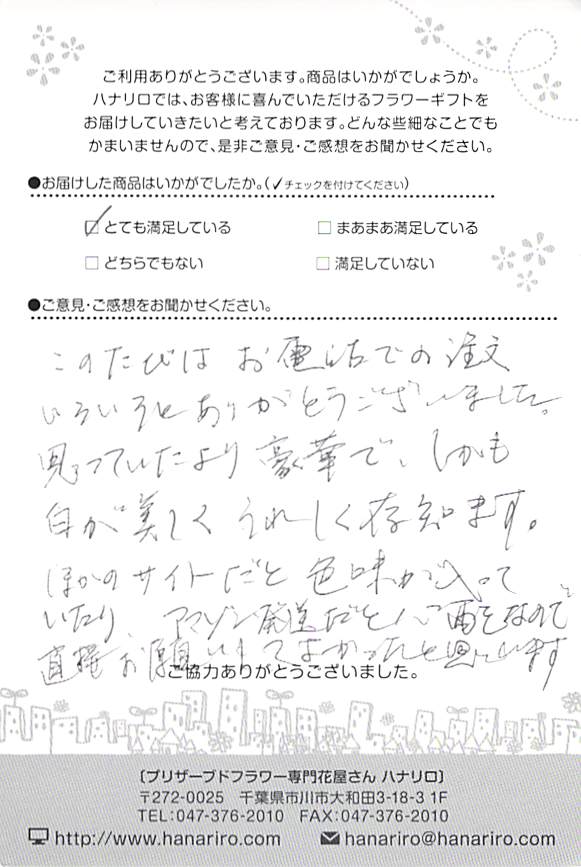 ご利用ありがとうございます。商品はいかがでしょうか。
ハナリロでは、お客様に喜んでいただけるフラワーギフトを
お届けしていきたいと考えております。どんな些細なことでも
かまいませんので、是非ご意見・ご感想をお聞かせください。
●お届けした商品はいかがでしたか。(✓チェックを付けてください)
☑とても満足している □まあまあ満足している
□どちらでもない □満足していない
●ご意見・ご感想をお聞かせください。
このたびは お電話での注文
いろいろとありがとうございました。
見っていたより豪華で、しかも
白が美しく うれしく存知ます。
ほかのサイトだと 色味が入って
いたり、アマゾン発送だと心配なので
直接お願いしてよかったと思います
ご協力ありがとうございました。
〔プリザーブドフラワー専門花屋さん ハナリロ〕
〒272-0025 千葉県市川市大和田3-18-3 1F
TEL:047-376-2010 FAX:047-376-2010
http://www.hanariro.com hanariro@hanariro.com